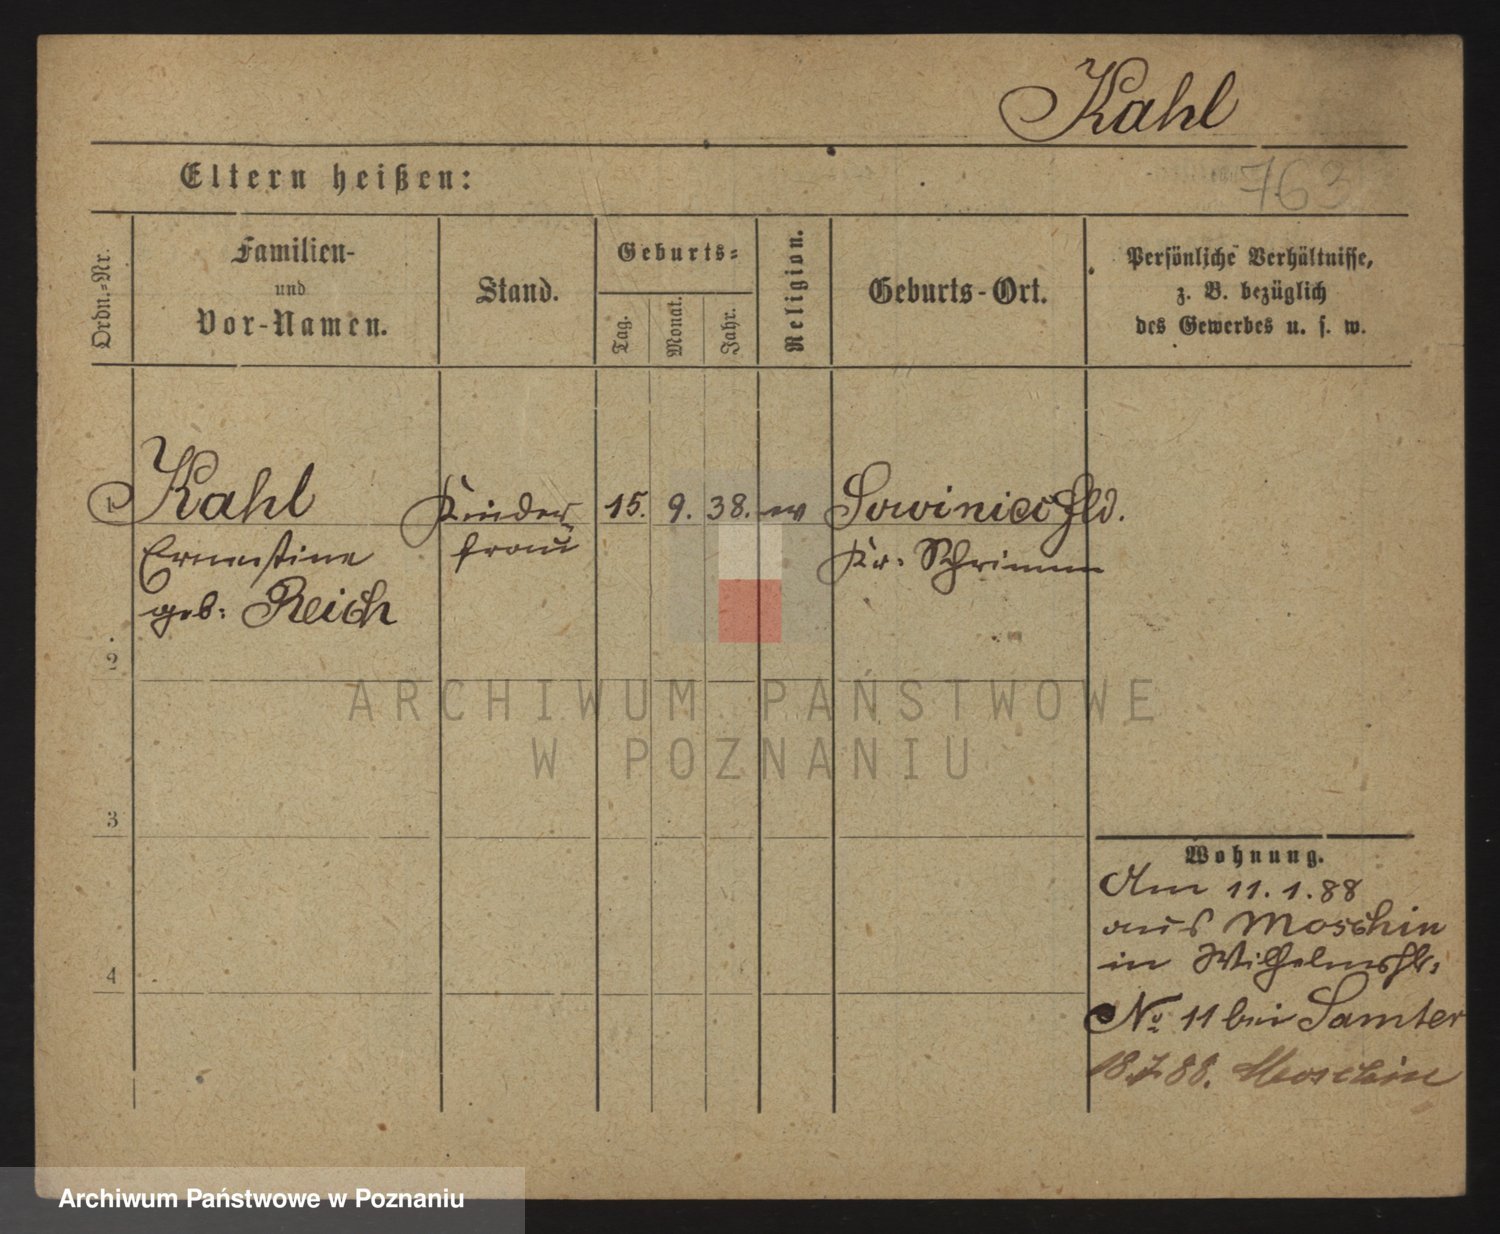 Kahl
763
Eltern heißen:
Ordn.-Nr.
Familien-
und
Vor-Namen.
Stand.
Geburts-
Tag.
Monat.
Jahr.
Religion.
Geburts-Ort.
Persönliche Verhältnisse,
z. B. bezüglich
des Gewerbes u. s. w.
1 Kahl Kinder- 15. 9. 38. ev Sowiniec Hld.
Ernestine frau Kr. Schrimm
geb: Reich
2
ARCHIWUM PAŃSTWOWE
W POZNANIU
3
4
Wohnung.
Am 11.1.88
aus Moschin
in Wilhelmsstr.
No 11 bei Samter
18.7.88. Moschin
Archiwum Państwowe w Poznaniu